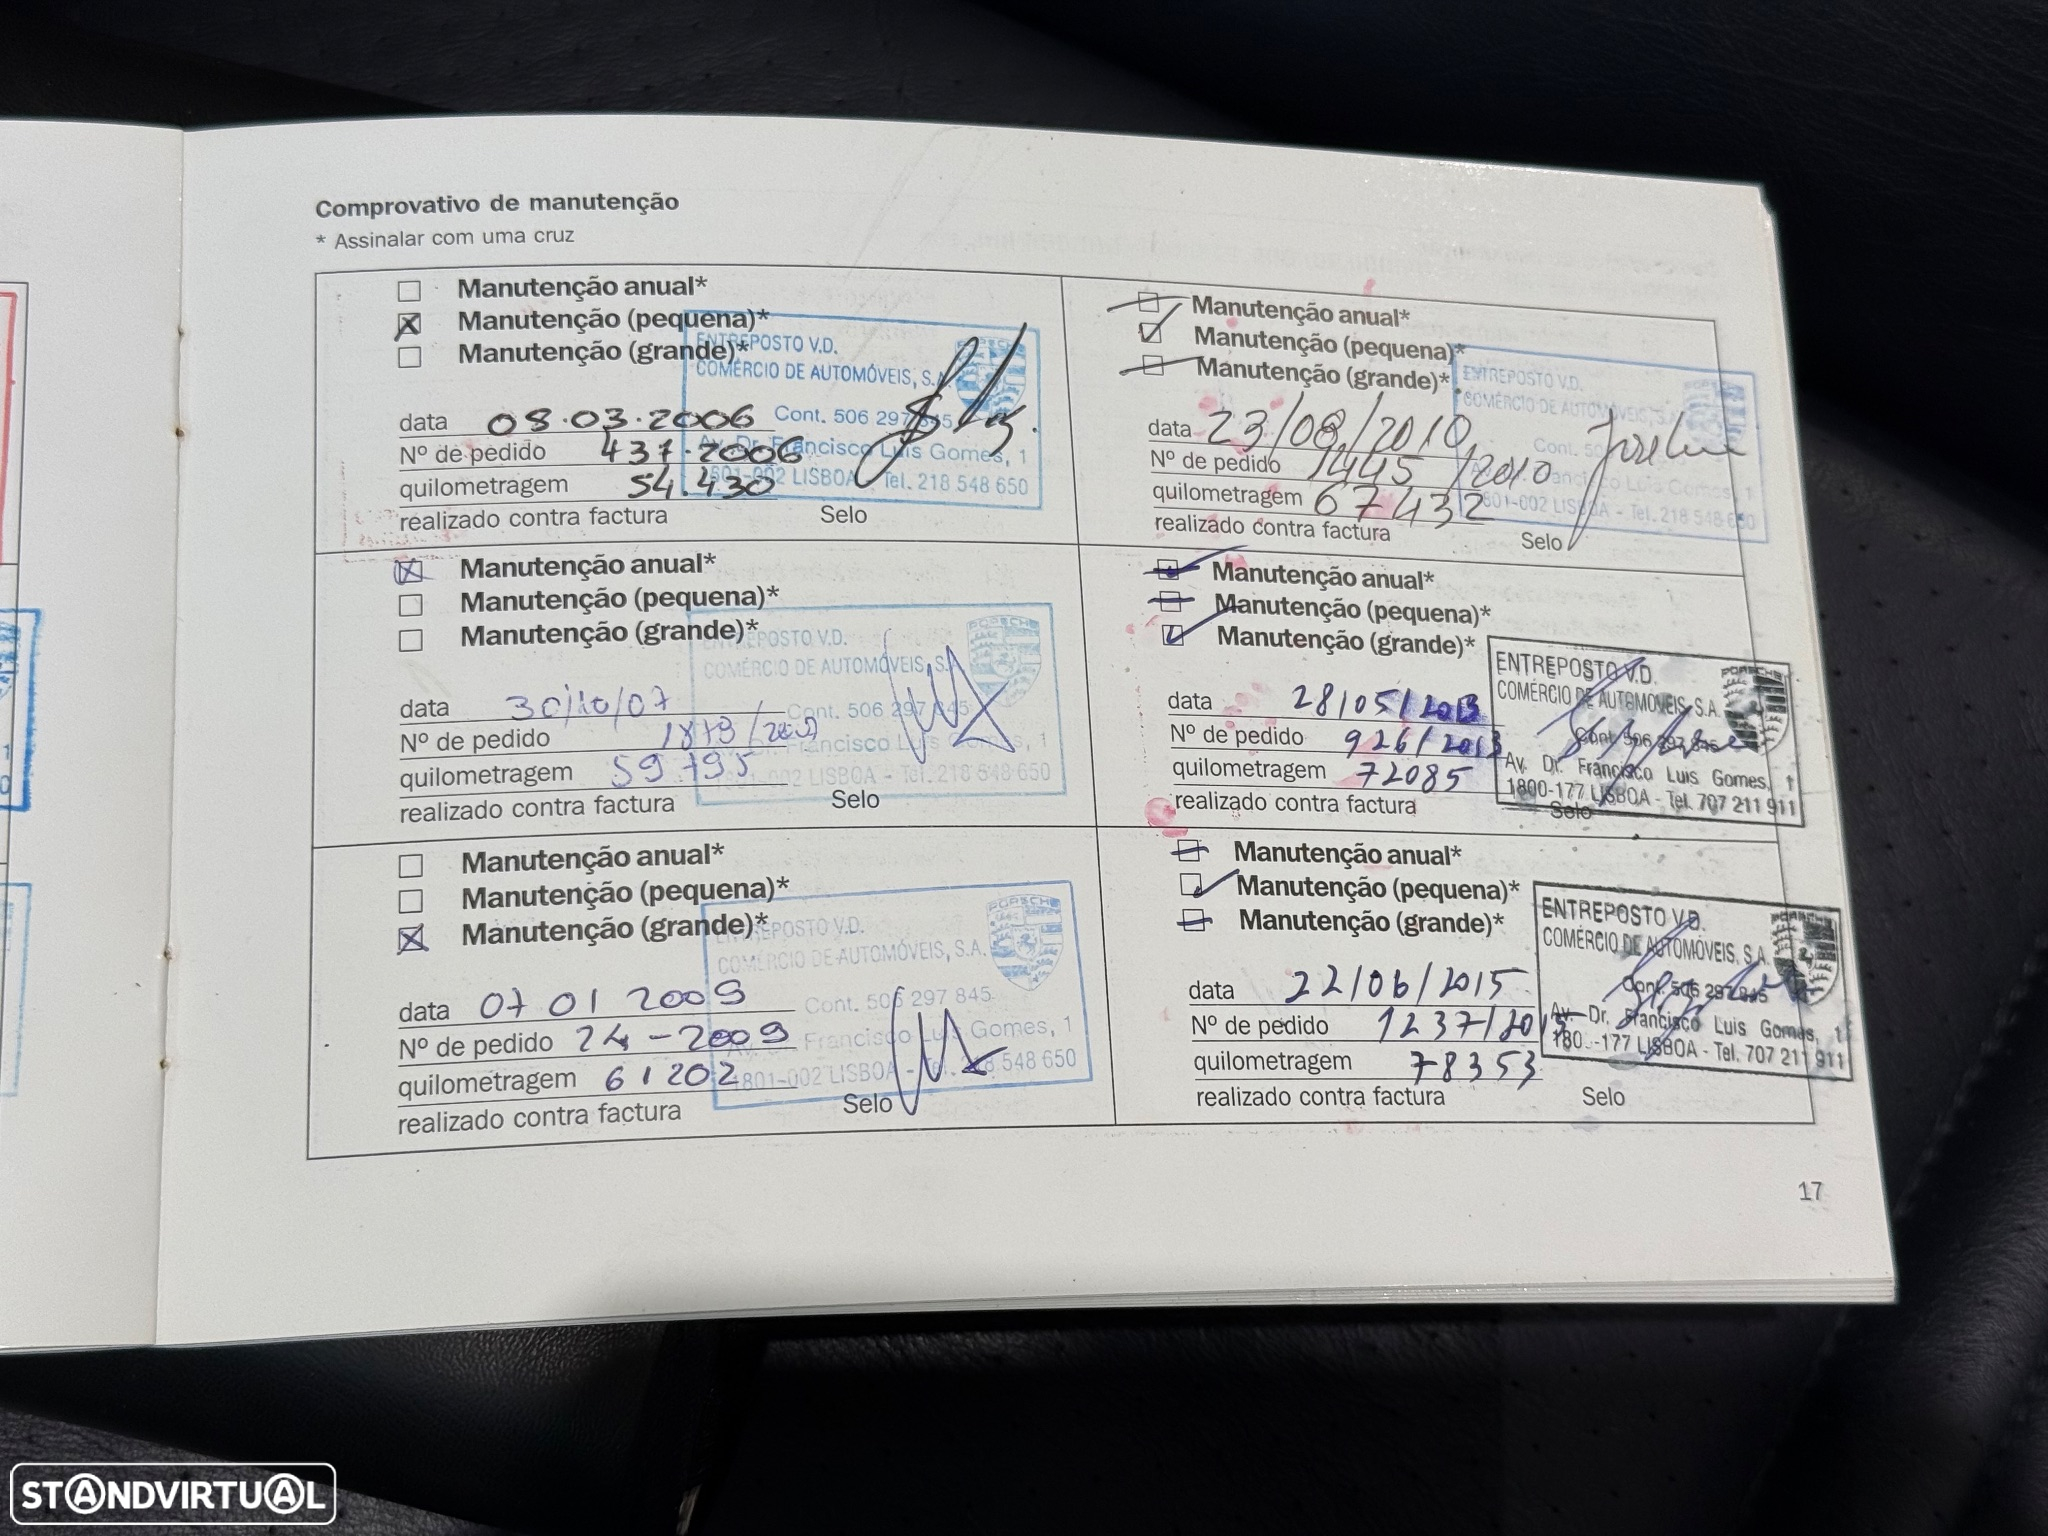 Comprovativo de manutenção
* Assinalar com uma cruz
Manutenção anual*
Manutenção (pequena)*
Manutenção (grande)*
ENTREPOSTO V.D.
COMÉRCIO DE AUTOMÓVEIS, S.A.
PORSCHE
Cont. 506 297 845
Av. Dr. Francisco Luis Gomes, 1
1801-002 LISBOA - Tel. 218 548 650
data 08.03.2006
Nº de pedido 437.2006
quilometragem 54.430
realizado contra factura Selo
Manutenção anual*
Manutenção (pequena)*
Manutenção (grande)*
ENTREPOSTO V.D.
COMÉRCIO DE AUTOMÓVEIS, S.A.
PORSCHE
Cont. 506 297 845
Av. Dr. Francisco Luis Gomes, 1
1801-002 LISBOA - Tel. 218 548 650
data 30/10/07
Nº de pedido
quilometragem 59795
realizado contra factura Selo
Manutenção anual*
Manutenção (pequena)*
Manutenção (grande)*
ENTREPOSTO V.D.
COMÉRCIO DE AUTOMÓVEIS, S.A.
PORSCHE
Cont. 506 297 845
Av. Dr. Francisco Luis Gomes, 1
1801-002 LISBOA - Tel. 218 548 650
data 07 01 2009
Nº de pedido 24-2009
quilometragem 61202
realizado contra factura Selo
Manutenção anual*
Manutenção (pequena)*
Manutenção (grande)*
ENTREPOSTO V.D.
COMÉRCIO DE AUTOMÓVEIS, S.A.
Av. Dr. Francisco Luis Gomes, 1
1801-002 LISBOA - Tel. 218 548 650
data 23/08/2010
Nº de pedido 1445/2010
quilometragem 67432
realizado contra factura Selo
Manutenção anual*
Manutenção (pequena)*
Manutenção (grande)*
ENTREPOSTO V.D.
COMÉRCIO DE AUTOMÓVEIS, S.A.
PORSCHE
Cont. 506 297 845
Av. Dr. Francisco Luis Gomes, 1
1800-177 LISBOA - Tel. 707 211 911
data 28/05/2013
Nº de pedido 926/2013
quilometragem 72085
realizado contra factura Selo
Manutenção anual*
Manutenção (pequena)*
Manutenção (grande)*
ENTREPOSTO V.D.
COMÉRCIO DE AUTOMÓVEIS, S.A.
PORSCHE
Cont. 506 297 845
Av. Dr. Francisco Luis Gomes, 1
1800-177 LISBOA - Tel. 707 211 911
data 22/06/2015
Nº de pedido 1237/2015
quilometragem 78353
realizado contra factura Selo
17
STANDVIRTUAL